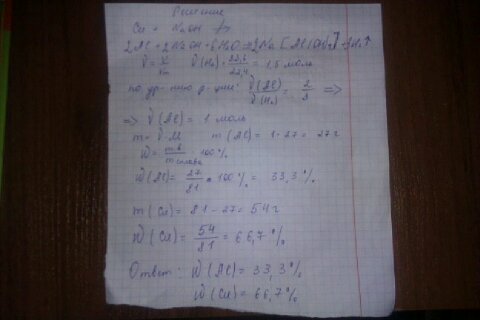 Решение
Cu + NaOH ≠>
2Al + 2NaOH + 6H2O = 2Na[Al(OH)4] + 3H2↑
ν = V/Vm ν(H2) = 33,6/22,4 = 1,5 моль
по ур-нию р-ции: ν(Al)/ν(H2) = 2/3 =>
=> ν(Al) = 1 моль
m = ν·M m(Al) = 1·27 = 27 г
W = m в/m сплава · 100%
W(Al) = 27/81 · 100% = 33,3%
m(Cu) = 81 - 27 = 54 г
W(Cu) = 54/81 = 66,7%
Ответ: W(Al) = 33,3%
W(Cu) = 66,7%